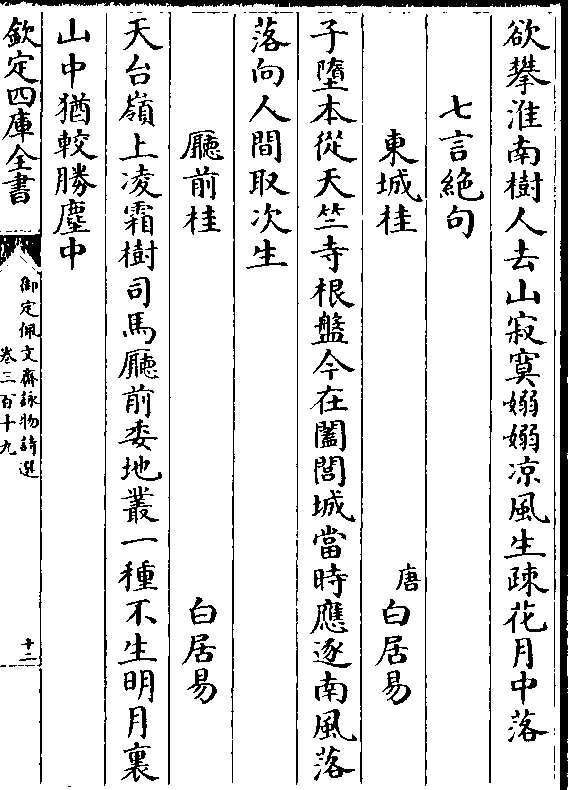 欲攀淮南樹人去山寂寞嫋嫋凉風生疎花月中落
七言絶句
東城桂
唐白居易
子墮本從天竺寺根盤今在闔閭城當時應逐南風落
落向人間取次生
廳前桂
白居易
天台嶺上凌霜樹司馬廳前委地叢一種不生明月裏
山中猶較勝塵中
欽定四庫全書
御定佩文齋詠物詩選
卷三百十九
十二